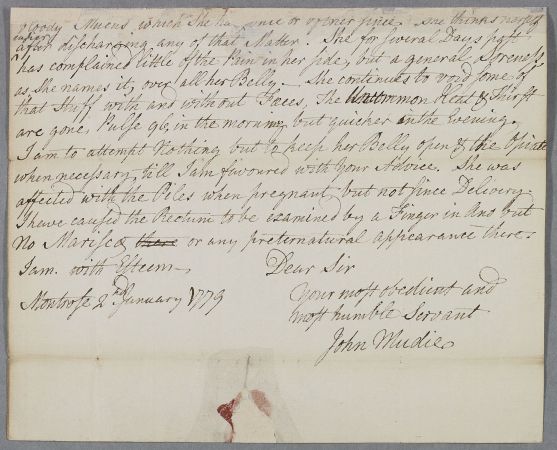 bloody Mucus which She has once or oftener since. She thinks herself
easier
after discharging any of that Matter. She for several Days past
has complained little of the Pain in her side, but a general Soreness
as She names it, over all her Belly. She continues to void some of
that Stuff with and without Fæces, The Uncommon Heat & Thirst
are gone, Pulse 96 in the morning but quicher in the Evening.
I am to attempt Nothing but to keep her Belly open & the Opiate
when necessary, till I am favoured with Your Advice. She was
affected with the Piles when pregnant, but not since Delivery.
I have caused the Rectum to be examined by a Finger in Ano but
No Mariscæ there or any preternatural appearance there.
I am with Esteem
Dear Sir
Your most obedient and
Montrose 2nd January 1779
most humble Servant
John Mudie